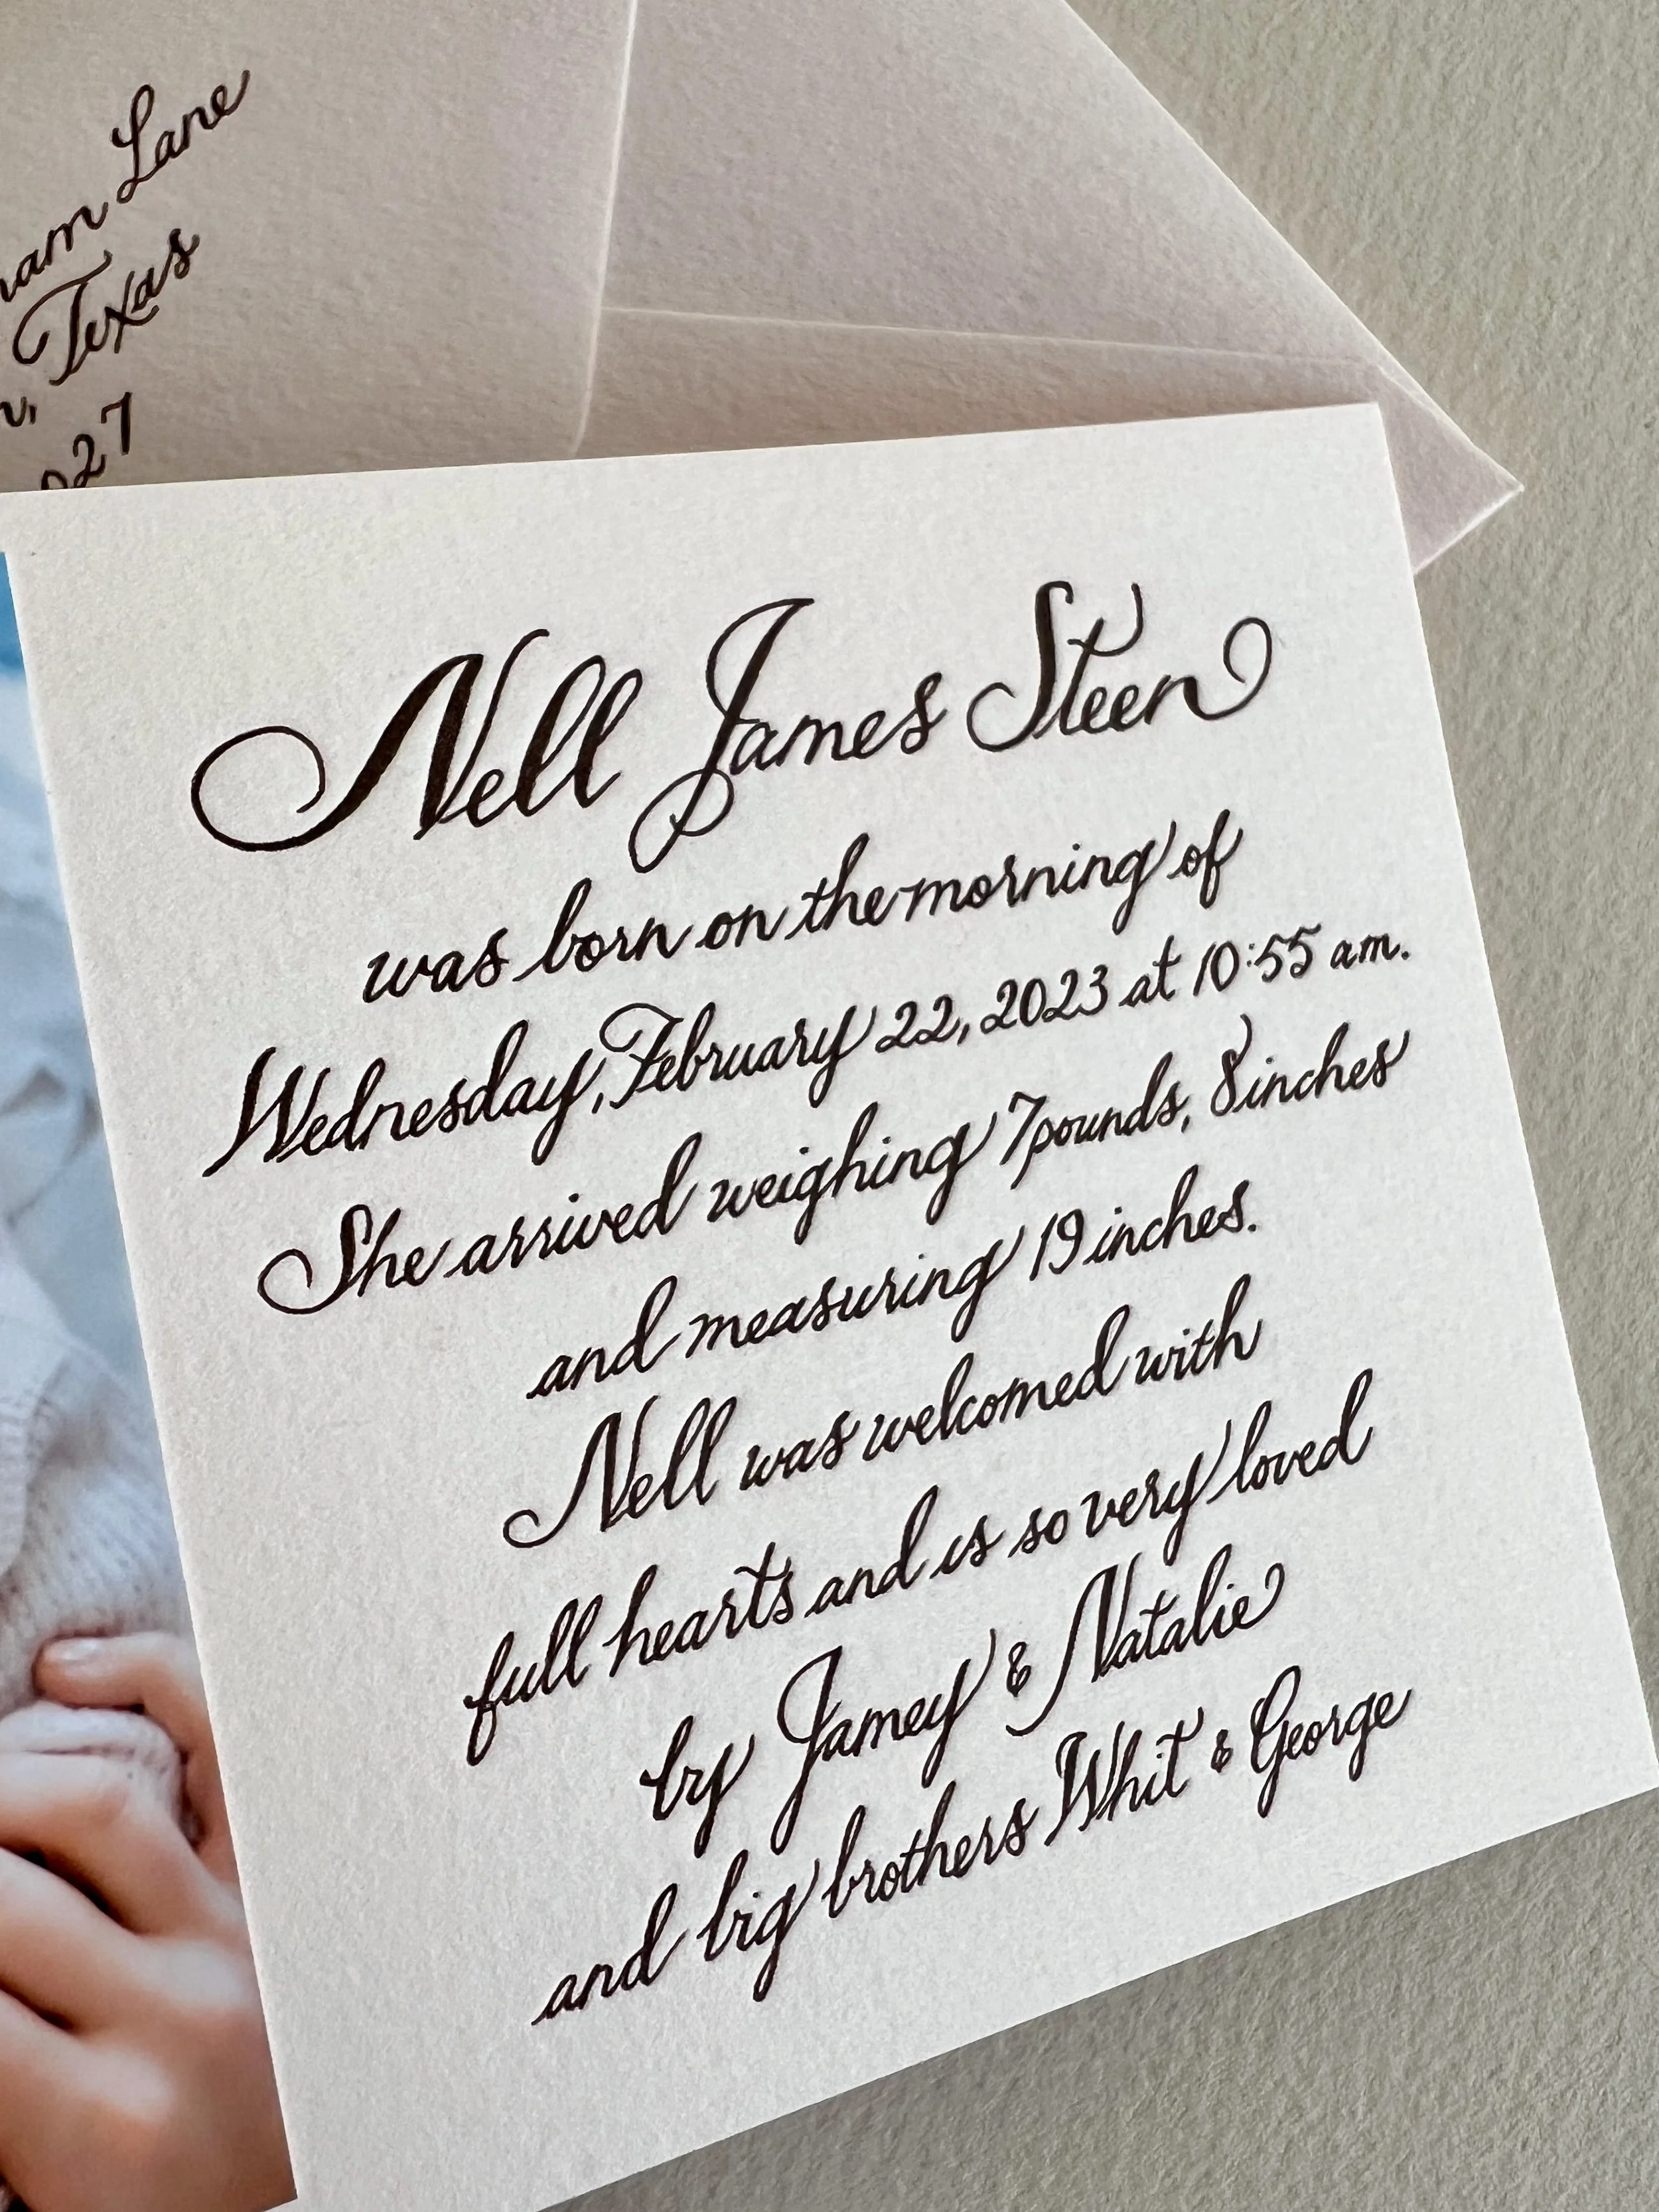 Lane
Texas
27
Nell James Steen
was born on the morning of
Wednesday, February 22, 2023 at 10:55 am.
She arrived weighing 7 pounds, 8 inches
and measuring 19 inches.
Nell was welcomed with
full hearts and is so very loved
by Jamey & Natalie
and big brothers Whit & George